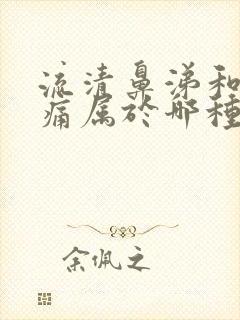 流清鼻涕和
痛属於哪種
余佩之